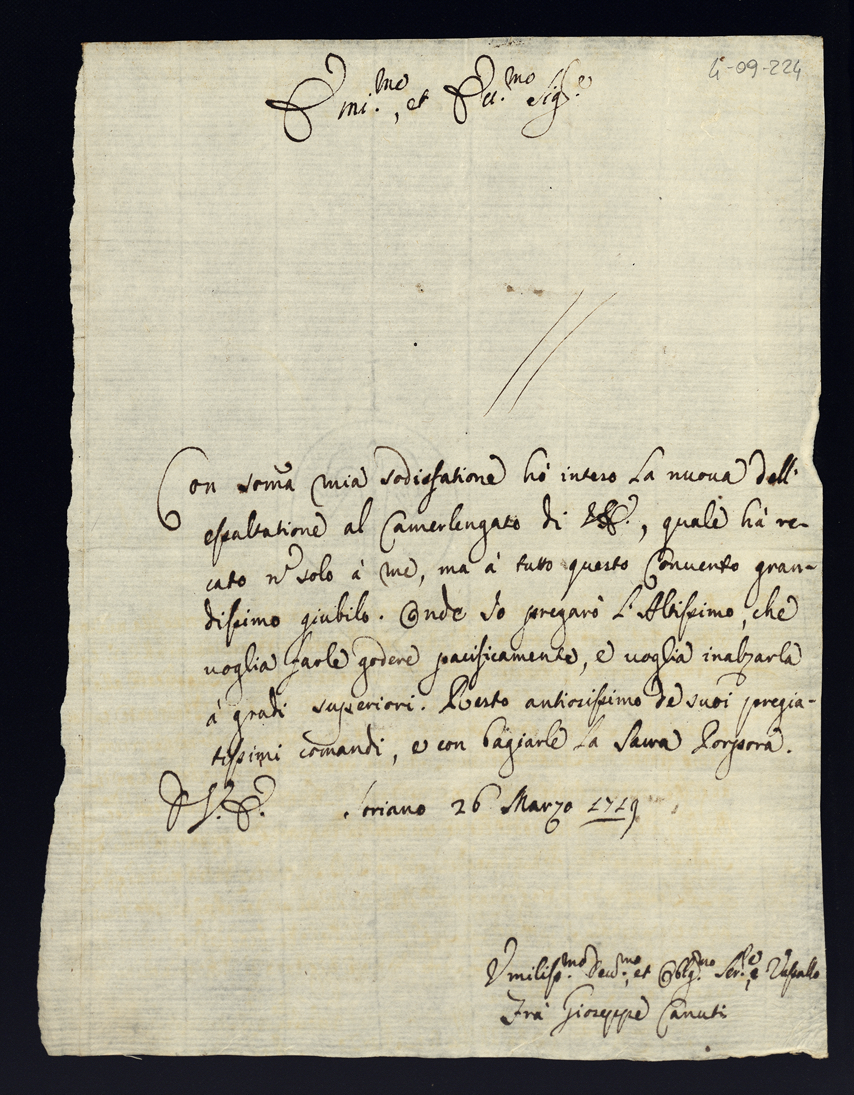 4-09-224
Emi.mo, et Rev.mo Sig.re
Con soma mia sodisfatione hò inteso la nuova dell'
esaltatione al Camerlengato di V.E., quale hà re-
cato nō solo à me, ma à tutto questo Convento gran-
dissimo giubilo. Onde Io pregarò L'Altissimo, che
voglia farle godere pacificamente, e voglia inalzarla
à gradi superiori. Resto antiosissimo de suoi pregia-
tissimi comandi, e con bagiarle la Sacra Porpora.
D. V. E. Soriano 26 Marzo 1719
Umiliss.mo Dev.mo, et Oblig.mo Ser.re, e Vassallo
Frà Gioseppe Canuti